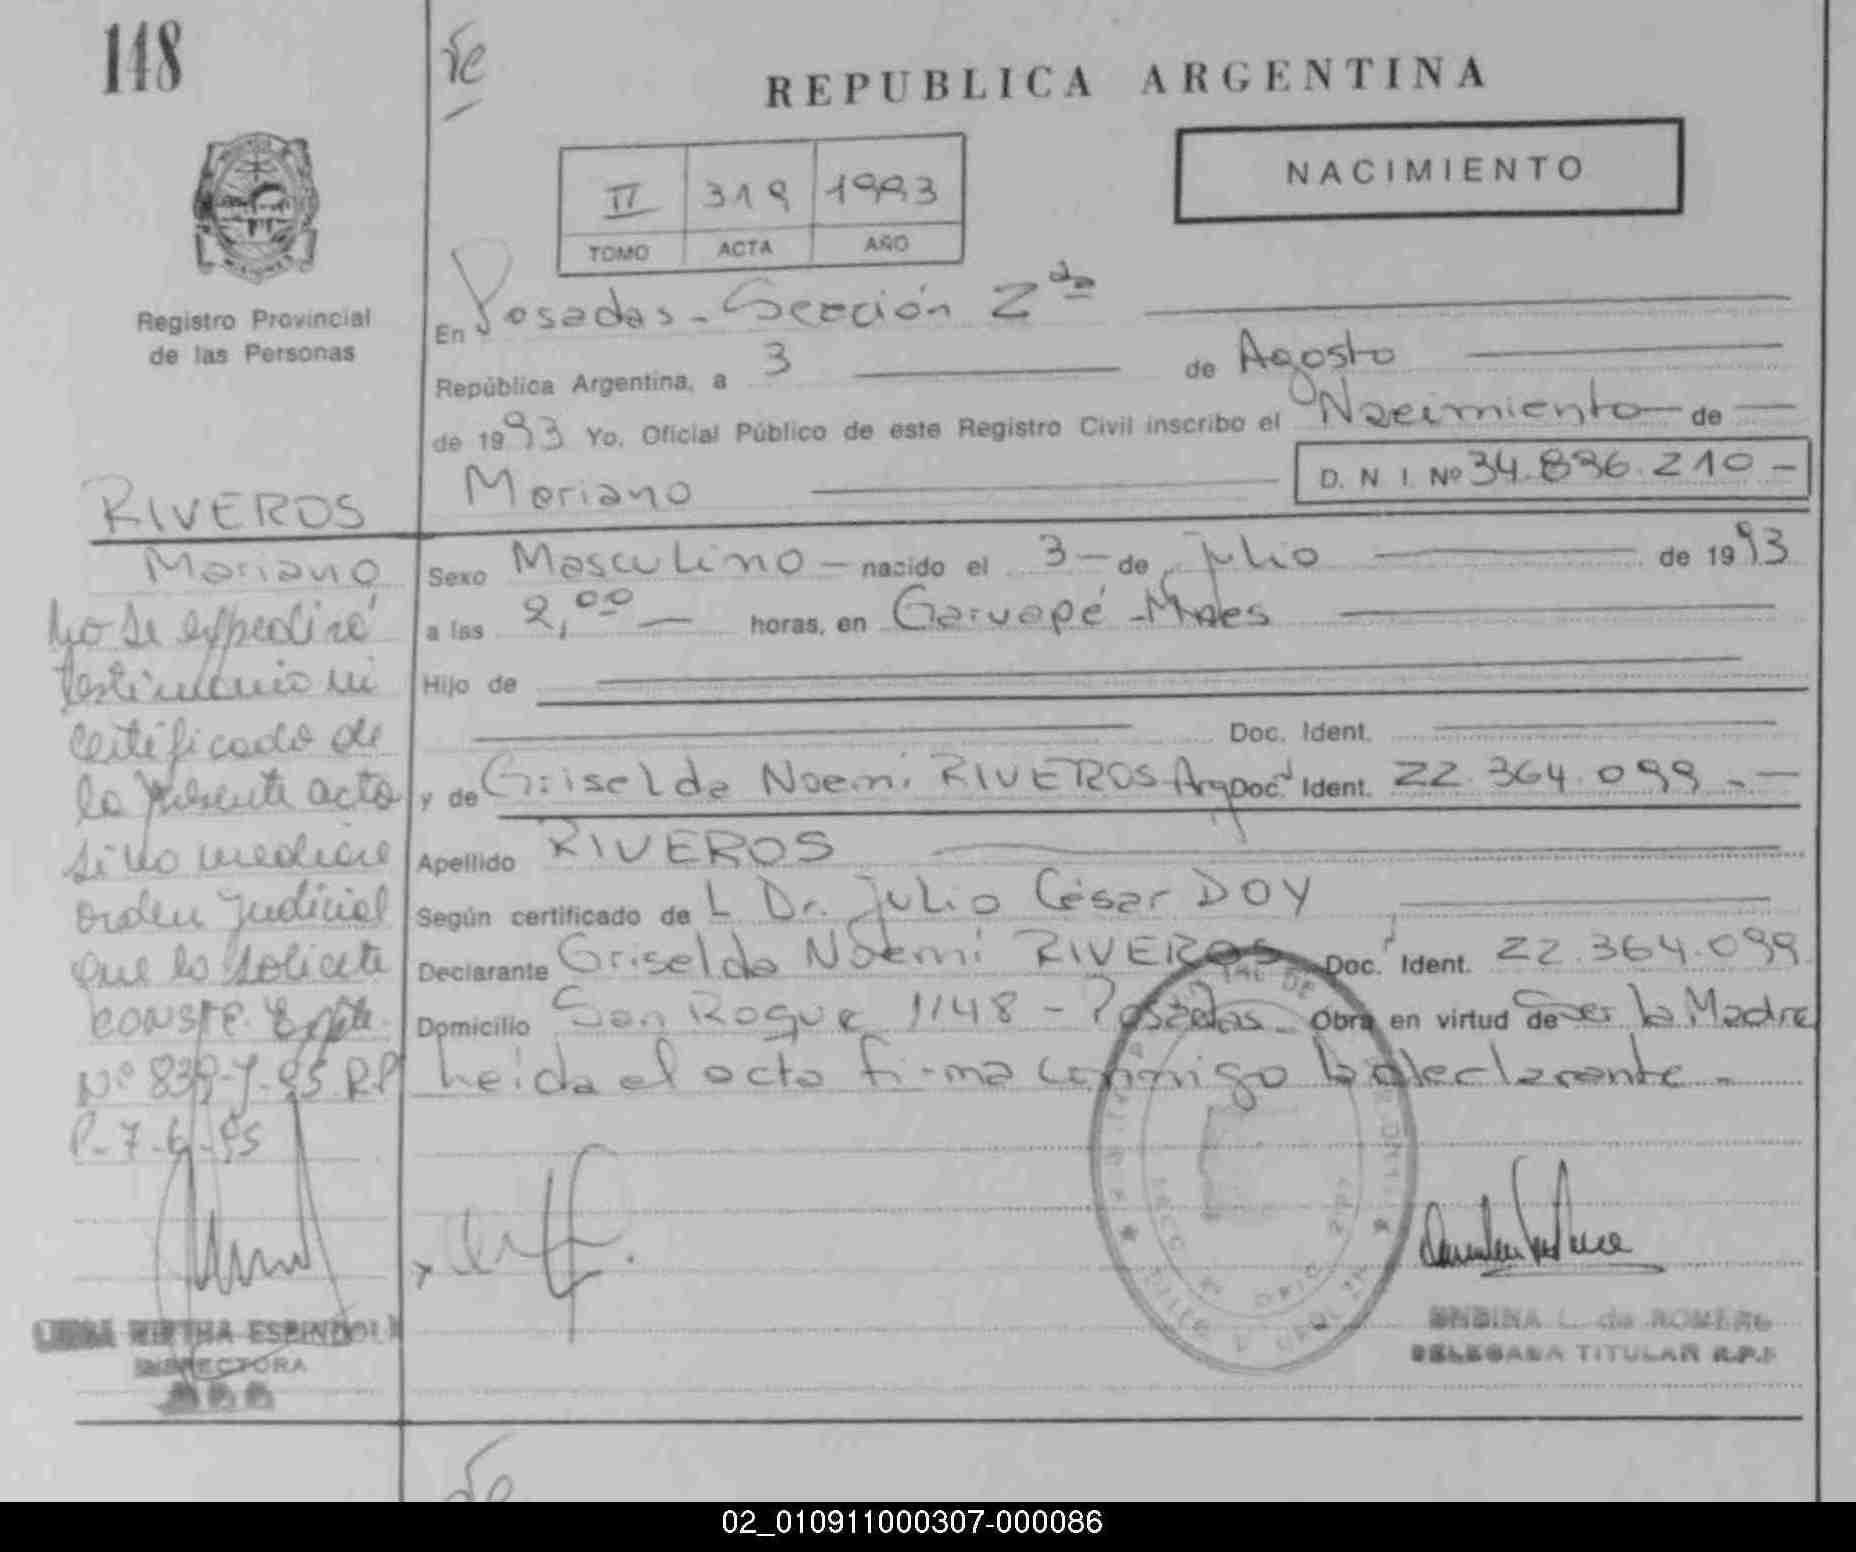 148
REPUBLICA ARGENTINA
NACIMIENTO
II 319 1993
TOMO ACTA AÑO
Registro Provincial
de las Personas
En Posadas - Sección 2da
República Argentina, a 3 de Agosto
de 1993 Yo, Oficial Público de este Registro Civil inscribo el Nacimiento de
Mariano D. N. I. Nº 34.896.210 -
RIVEROS
Mariano
Sexo Masculino nacido el 3 de julio de 1993
a las 2,00 horas, en Garuapé - Mnes
Hijo de
Doc. Ident.
y de Griselda Noemi RIVEROS Arg Doc. Ident. 22.364.099 -
Apellido RIVEROS
Según certificado de L Dr. Julio César DOY
Declarante Griselda Noemi RIVEROS Doc. Ident. 22.364.099
Domicilio San Roque 1148 - Posadas - Obra en virtud de Ser la Madre
Leída el acta firma conmigo la declarante -
No se expedirá
testimonio ni
certificado de
la presente acta
si no mediare
orden judicial
que lo solicite
CONSTE. Expte.
Nº 839-J-95 R.P
P- 7-6-95
MIRTHA ESPINDOLA
INSPECTORA
L. de ROMERO
DELEGADA TITULAR R.P.P
02_010911000307-000086